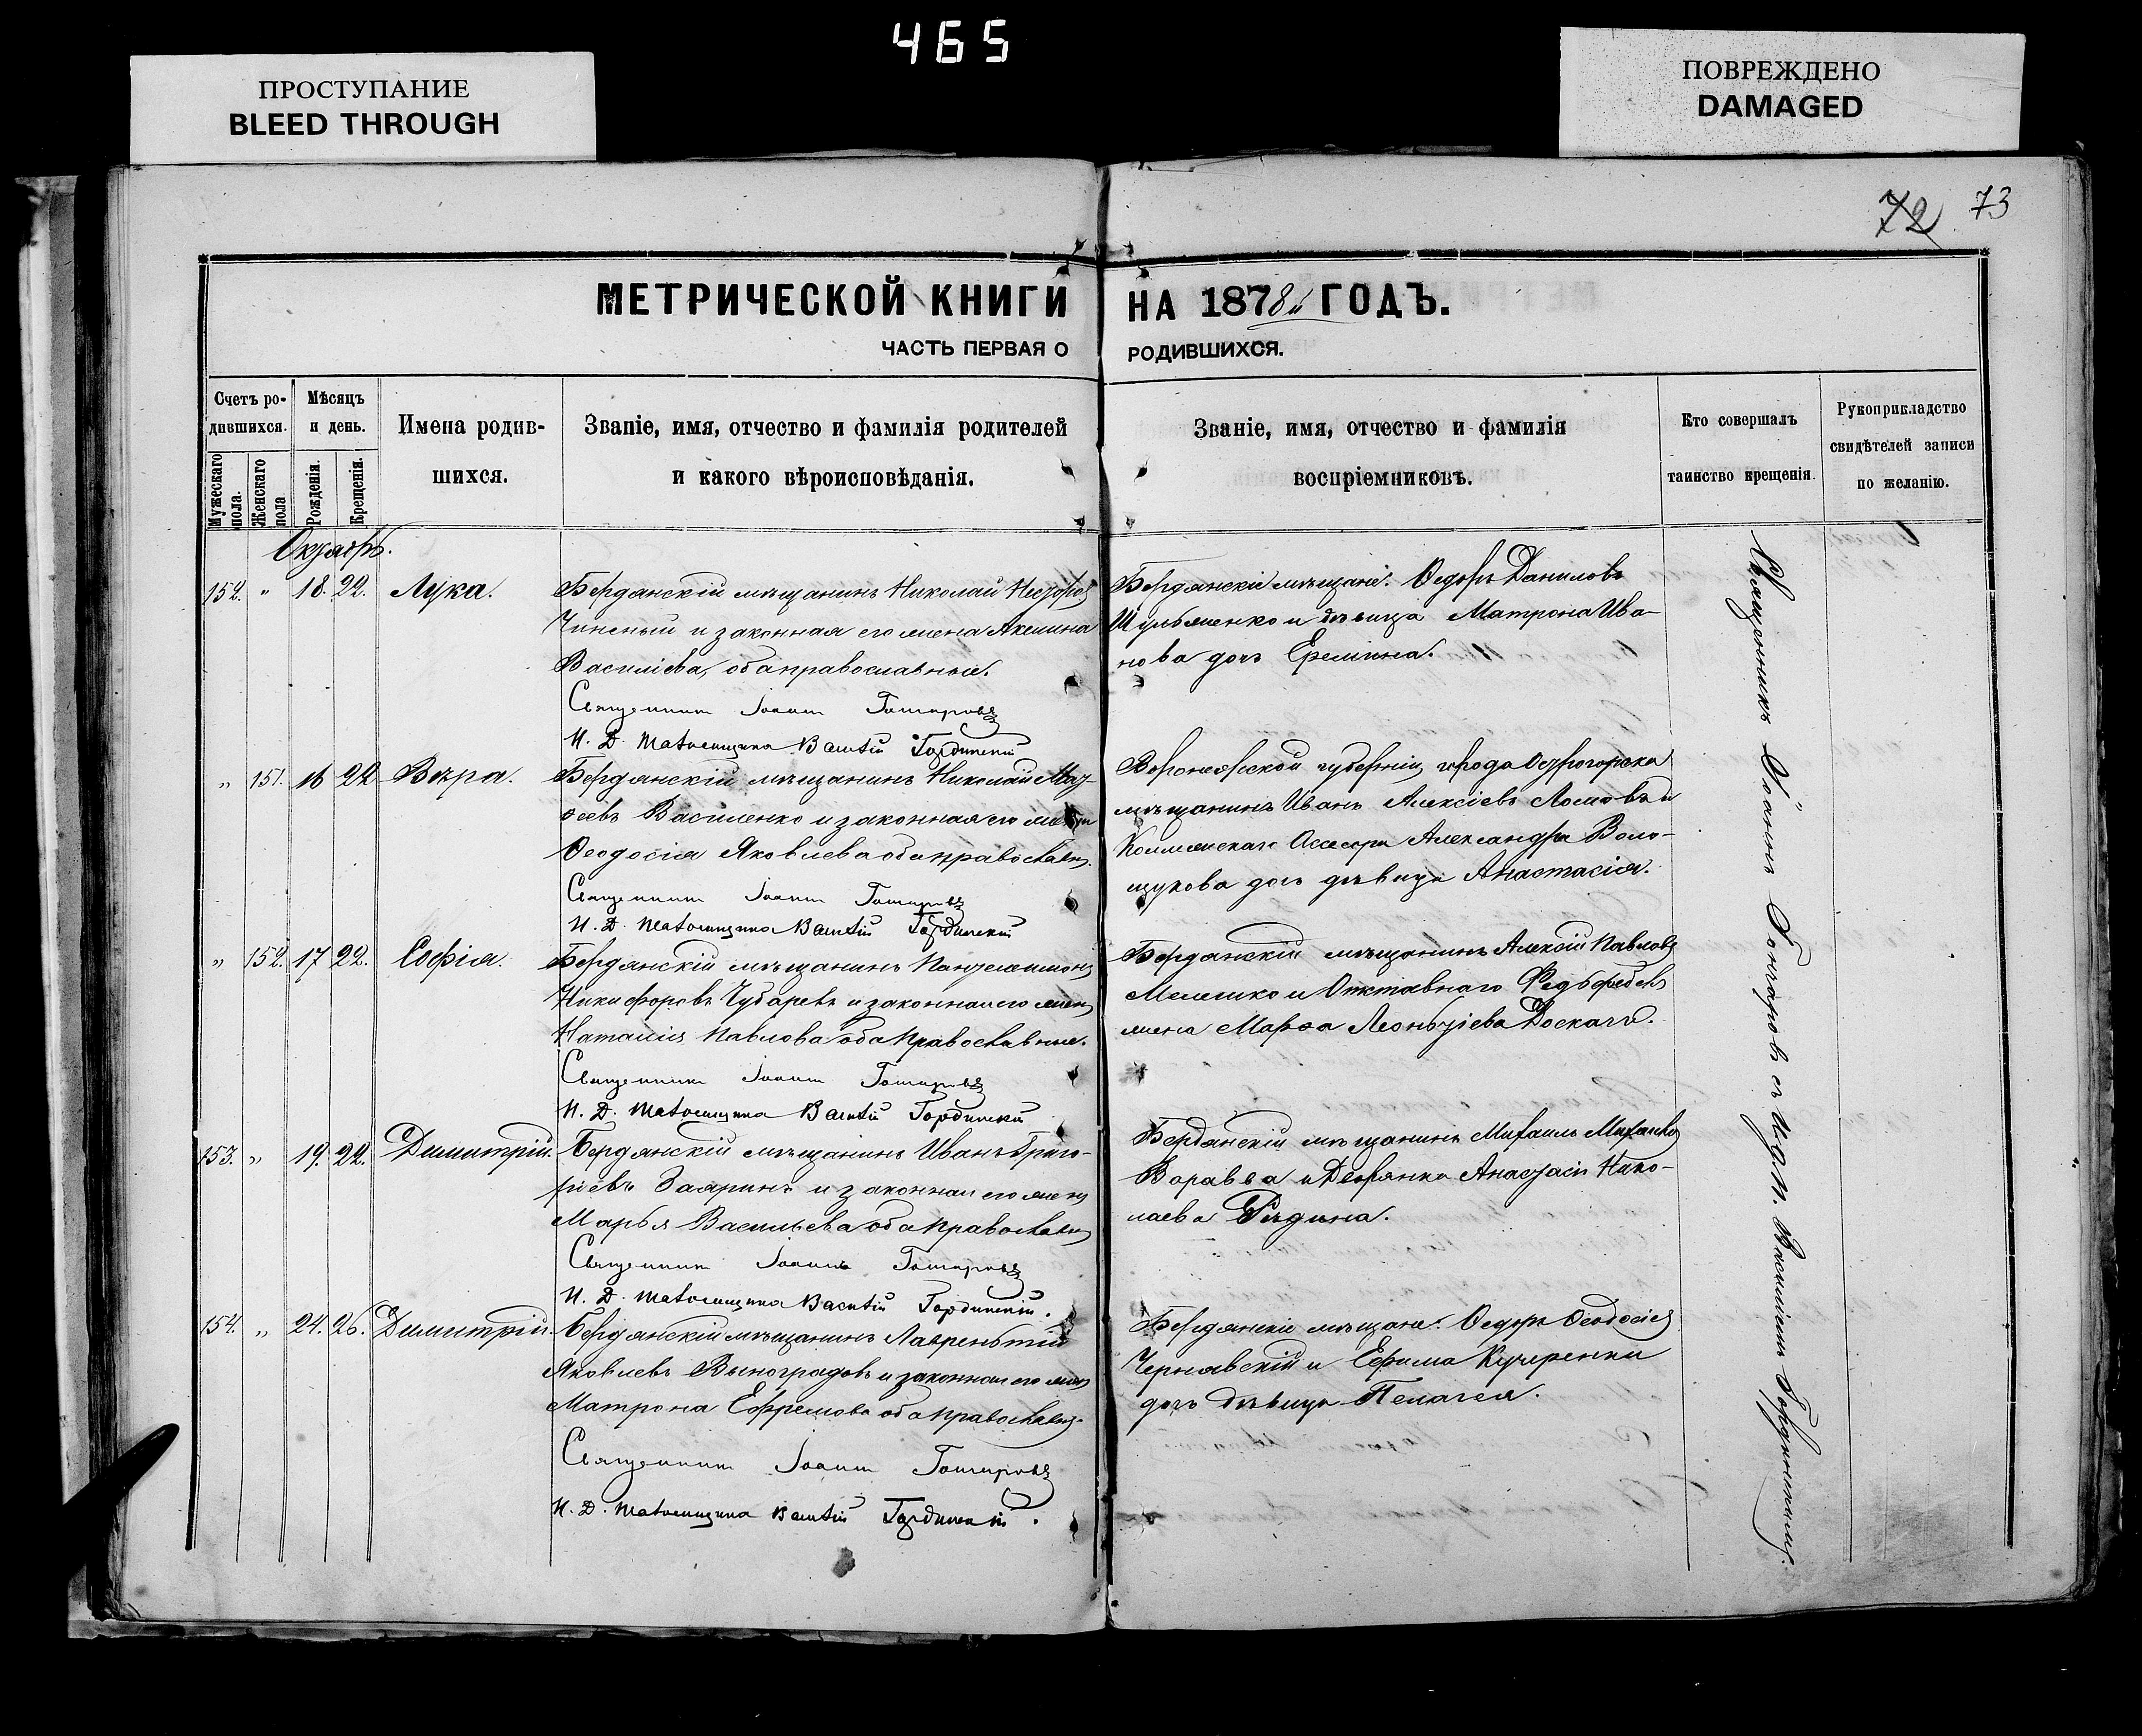 465
ПРОСТУПАНИЕ
BLEED THROUGH
ПОВРЕЖДЕНО
DAMAGED
72 73
МЕТРИЧЕСКОЙ КНИГИ НА 1878й ГОДЪ.
ЧАСТЬ ПЕРВАЯ О РОДИВШИХСЯ.
Счетъ ро-
дившихся.
Мужескаго пола.
Женскаго пола
Мѣсяцъ
и день.
Рожденія.
Крещенія.
Имена родив-
шихся.
Званіе, имя, отчество и фамилія родителей
и какого вѣроисповѣданія.
Званіе, имя, отчество и фамилія
воспріемниковъ.
Кто совершалъ
таинство крещенія.
Рукоприкладство
свидѣтелей записи
по желанію.
Октябрь.
152. " 18. 22. Лука.
Бердянскій мѣщанинъ Николай
и законная его жена Акилина
Василіева, оба православные.
Священникъ Іоаннъ Гончаровъ
И. Д. Псаломщика Василій Гординскій
Бердянскіе мѣщане: Ѳедоръ Даниловъ
и дѣвица Матрона Ива-
нова дочь Еремина.
" 151. 16 22 Вѣра.
Бердянскій мѣщанинъ Николай Мат-
ѳеевъ Василенко и законная его жена
Ѳеодосія Яковлева оба православн.
Священникъ Іоаннъ Гончаровъ
И. Д. Псаломщика Василій Гординскій
Воронежской губерніи, города Острогорска
мѣщанинъ Иванъ Алексіевъ Ломовъ и
Коллежскаго Ассесора Александра Воло-
щукова дочь дѣвица Анастасія.
" 152. 17 22. Софія.
Бердянскій мѣщанинъ Пантелеимонъ
Никифоровъ Чубаревъ и законная его жена
Наталія Павлова оба православные.
Священникъ Іоаннъ Гончаровъ
И. Д. Псаломщика Василій Гординскій
Бердянскій мѣщанинъ Алексій Павловъ
и Отставнаго
жена Марѳа Леонтіева
153. " 19. 22. Димитрій.
Бердянскій мѣщанинъ Иванъ Григо-
ріевъ и законная его жена
Марья Васильева оба православн
Священникъ Іоаннъ Гончаровъ
И. Д. Псаломщика Василій Гординскій.
Бердянскій мѣщанинъ Михаилъ Михайловъ
и Дворянка Анастасія Нико-
лаева
154. " 24. 26. Димитрій.
Бердянскій мѣщанинъ Лаврентій
Яковлевъ Виноградовъ и законная его жена
Матрона Ефремова оба православн.
Священникъ Іоаннъ Гончаровъ
И. Д. Псаломщика Василій Гординскій.
Бердянскіе мѣщане: Ѳедоръ Ѳеодосіевъ
Чернявскій и Ефима Кучеренки
дочь дѣвица Пелагея.
Священникъ Іоаннъ Гончаровъ съ И. д. п. Василіемъ Гординскимъ.